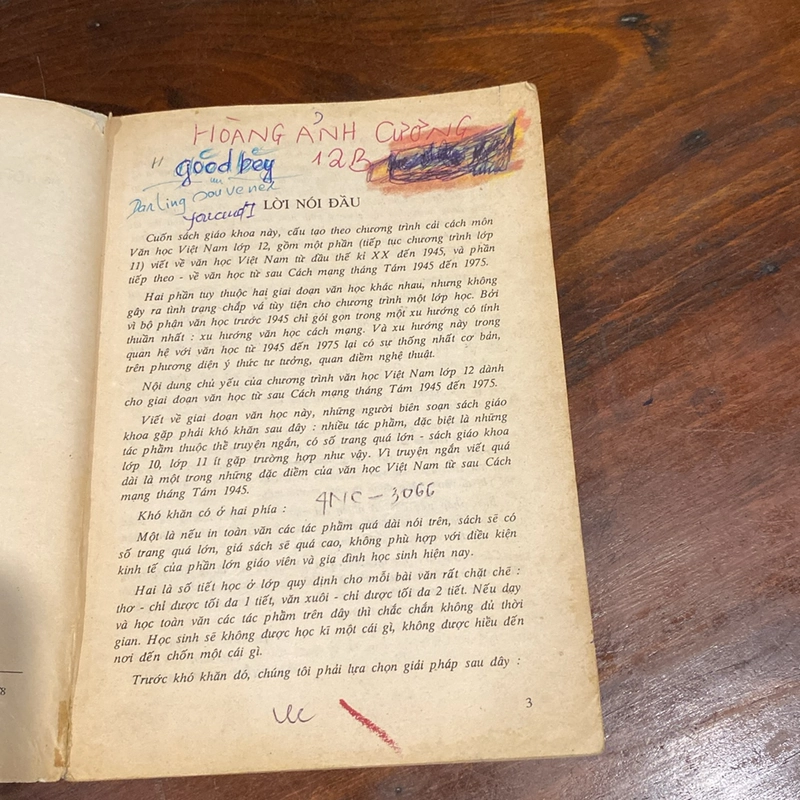 HOÀNG ẢNH CƯỜNG
good bey 12B
Darling souvener
LỜI NÓI ĐẦU
Cuốn sách giáo khoa này, cấu tạo theo chương trình cải cách môn
Văn học Việt Nam lớp 12, gồm một phần (tiếp tục chương trình lớp
11) viết về văn học Việt Nam từ đầu thế kỉ XX đến 1945, và phần
tiếp theo - về văn học từ sau Cách mạng tháng Tám 1945 đến 1975.
Hai phần tuy thuộc hai giai đoạn văn học khác nhau, nhưng không
gây ra tình trạng chắp vá tùy tiện cho chương trình một lớp học. Bởi
vì bộ phận văn học trước 1945 chỉ gói gọn trong một xu hướng có tính
thuần nhất : xu hướng văn học cách mạng. Và xu hướng này trong
quan hệ với văn học từ 1945 đến 1975 lại có sự thống nhất cơ bản,
trên phương diện ý thức tư tưởng, quan điểm nghệ thuật.
Nội dung chủ yếu của chương trình văn học Việt Nam lớp 12 dành
cho giai đoạn văn học từ sau Cách mạng tháng Tám 1945 đến 1975.
Viết về giai đoạn văn học này, những người biên soạn sách giáo
khoa gặp phải khó khăn sau đây : nhiều tác phẩm, đặc biệt là những
tác phẩm thuộc thể truyện ngắn, có số trang quá lớn - sách giáo khoa
lớp 10, lớp 11 ít gặp trường hợp như vậy. Vì truyện ngắn viết quá
dài là một trong những đặc điểm của văn học Việt Nam từ sau Cách
mạng tháng Tám 1945.
Khó khăn có ở hai phía : 4NC - 3066
Một là nếu in toàn văn các tác phẩm quá dài nói trên, sách sẽ có
số trang quá lớn, giá sách sẽ quá cao, không phù hợp với điều kiện
kinh tế của phần lớn giáo viên và gia đình học sinh hiện nay.
Hai là số tiết học ở lớp quy định cho mỗi bài văn rất chặt chẽ :
thơ - chỉ được tối đa 1 tiết, văn xuôi - chỉ được tối đa 2 tiết. Nếu dạy
và học toàn văn các tác phẩm trên đây thì chắc chắn không đủ thời
gian. Học sinh sẽ không được học kĩ một cái gì, không được hiểu đến
nơi đến chốn một cái gì.
Trước khó khăn đó, chúng tôi phải lựa chọn giải pháp sau đây :
3